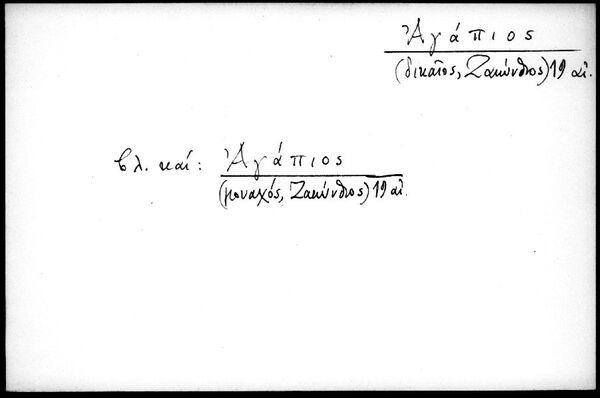 Ἀγάπιος
(δικαῖος, Ζακύνθιος) 19 αἰ.
βλ. καί: Ἀγάπιος
(μοναχός, Ζακύνθιος) 19 αἰ.